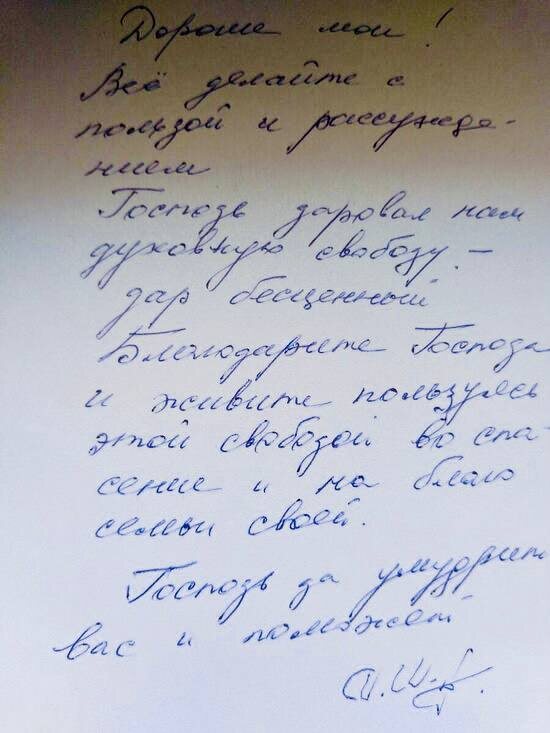 Дорогие мои!
Всё делайте с
пользой и рассужде-
нием
Господь даровал нам
духовную свободу –
дар бесценный
Благодарите Господа
и живите пользуясь
этой свободой во спа-
сение и на благо
семьи своей.
Господь да умудрит
вас и поможет